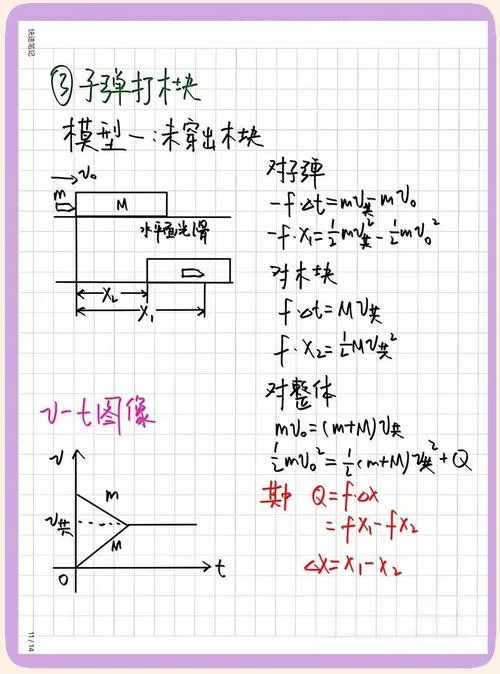 快速笔记
③子弹打木块
模型一:未穿出木块
v₀
m
M
水平面光滑
x₂
x₁
对子弹
-f·Δt=mv共-mv₀
-f·x₁=½mv共²-½mv₀²
对木块
f·Δt=Mv共
f·x₂=½Mv共²
对整体
mv₀=(m+M)v共
½mv₀²=½(m+M)v共²+Q
其中 Q=f·Δx
=fx₁-fx₂
Δx=x₁-x₂
v-t图像
v
m
v共
M
0
t
11/14